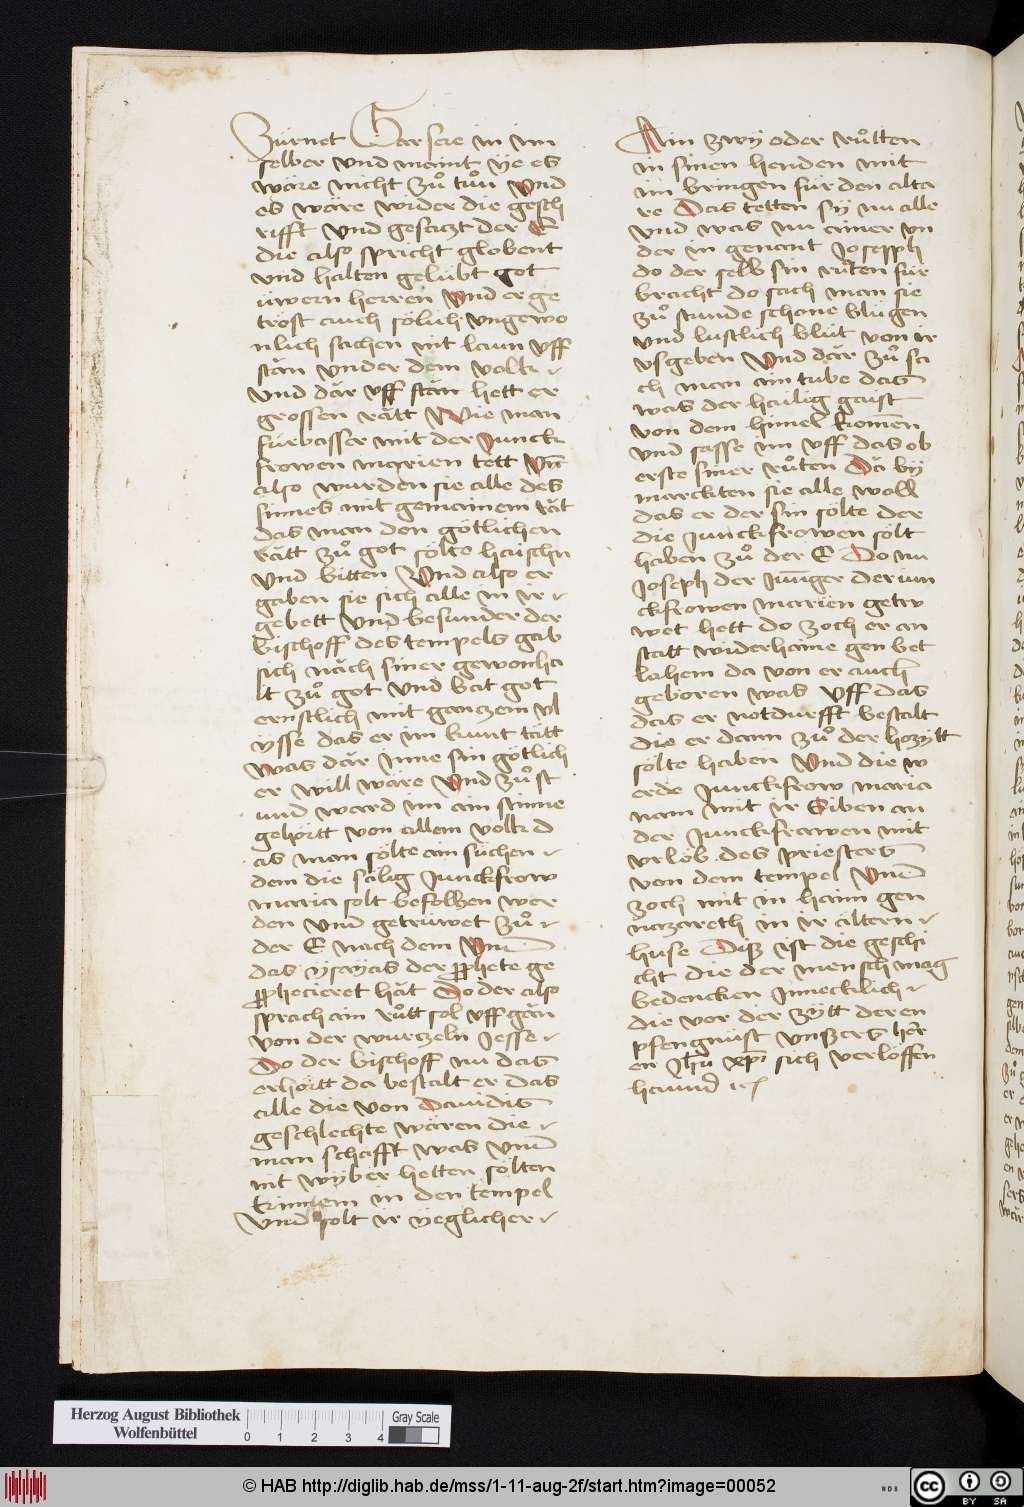 Zürnet Gar ser in im
selber vnd maint ÿe es
wäre nicht zuͦ tuͦn vnd
es wäre wider die gesch
rifft vnd gesaczt der E
die also spricht globent
vnd halten gelübt got
üwern herren Vnd er ge
tröst auch sölich vngewo
nlich sachen nit laun vff
stän vnder dem volk
vnd där vff stän hett er
grossen rätt Wie man
fürbasser mit der Junck
frowen marien tett Vn̄
also wurden sie alle des
sinnes mit gemainem rät
das man den götlichen
rätt zuͦ got sölte haischn
vnd bitten Vnd also er
gaben sie sich alle in ir
gebett vnd besunder der
bischoff des tempels gab
sich näch siner gewonha
it zuͦ got vnd bat got
ernstlich mit ganczem vl
ysse das er im kunt tätt
was där Inne sin götlich
er will wäre Vnd zuͦ st
und ward im ain stimme
gehörtt von allem volk d
as man sölte ain suͦchen
dem die sälig Junckfrow
maria solt befolhen wer
den vnd getrüwet zuͦ
der E nach dem Vnd
das ysayas der prophete ge
prophecieret hät Do der also
sprach ain ruͦtt sol vff gän
von der wurczeln Jesse
Do der bischoff nu das
erhörtt da bestalt er das
alle die von Dauidis
geschlechte wären die
man schafft was vnd
nit wyber hetten sölten
kummem in den tempel
Vnd solt ir yeglicher
Ain zwÿ oder ruͦtten
in sinen henden mit
im bringen für den alta
re Das tetten sÿ nu alle
vnd was nu ainer vn
der in genant Joseph
do der selb sin ruͦten für
bracht do sach man sie
zuͦ stunde schone blügen
vnd lustlich blüt von ir
vsgeben Vnd där zuͦ sa
ch man ain tube das
was der hailig gaist
von dem himel komen
vnd sasse im vff das ob
erste siner ruͦten Da bÿ
marckten sie alle woll
das er der sin sölte der
die Junckfrowen sölt
haben zuͦ der E Do nu
Joseph der Junger der iun
ckfrowen marien getru
wet hett do zoch er an
statt widerhaime gen bet
lahem da von er auch
geboren was vff das
das er notdurfft bestalt
die er dann zuͦ der hozytt
sölte haben Vnd die w
erde Junckfrow maria
nam mit ir Siben an
der Junckfrawen mit
vrlöb des priesters
von dem tempel Vnd
zoch mit in haim gen
nazareth in ir ältern
huse Disz ist die geschi
cht die der mensch mag
bedencken Inneclich
die vor der zytt der en
pfengnüst vnszers herr
en Jhu xpi sich verlöffen
haund

Herzog August Bibliothek
Wolfenbüttel
0 1 2 3 4
Gray Scale
© HAB http://diglib.hab.de/mss/1-11-aug-2f/start.htm?image=00052
cc BY SA